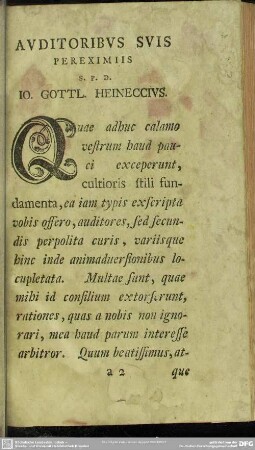 AVDITORIBVS SVIS
PEREXIMIIS
S. P. D.
IO. GOTTL. HEINECCIVS.
Quae adhuc calamo
vestrum haud pau-
ci exceperunt,
cultioris stili fun-
damenta, ea iam typis exscripta
vobis offero, auditores, sed secun-
dis perpolita curis, variisque
hinc inde animaduersionibus lo-
cupletata. Multae sunt, quae
mihi id consilium extorserunt,
rationes, quas a nobis non igno-
rari, mea haud parum interesse
arbitror. Quum beatissimus, at-
a 2
que